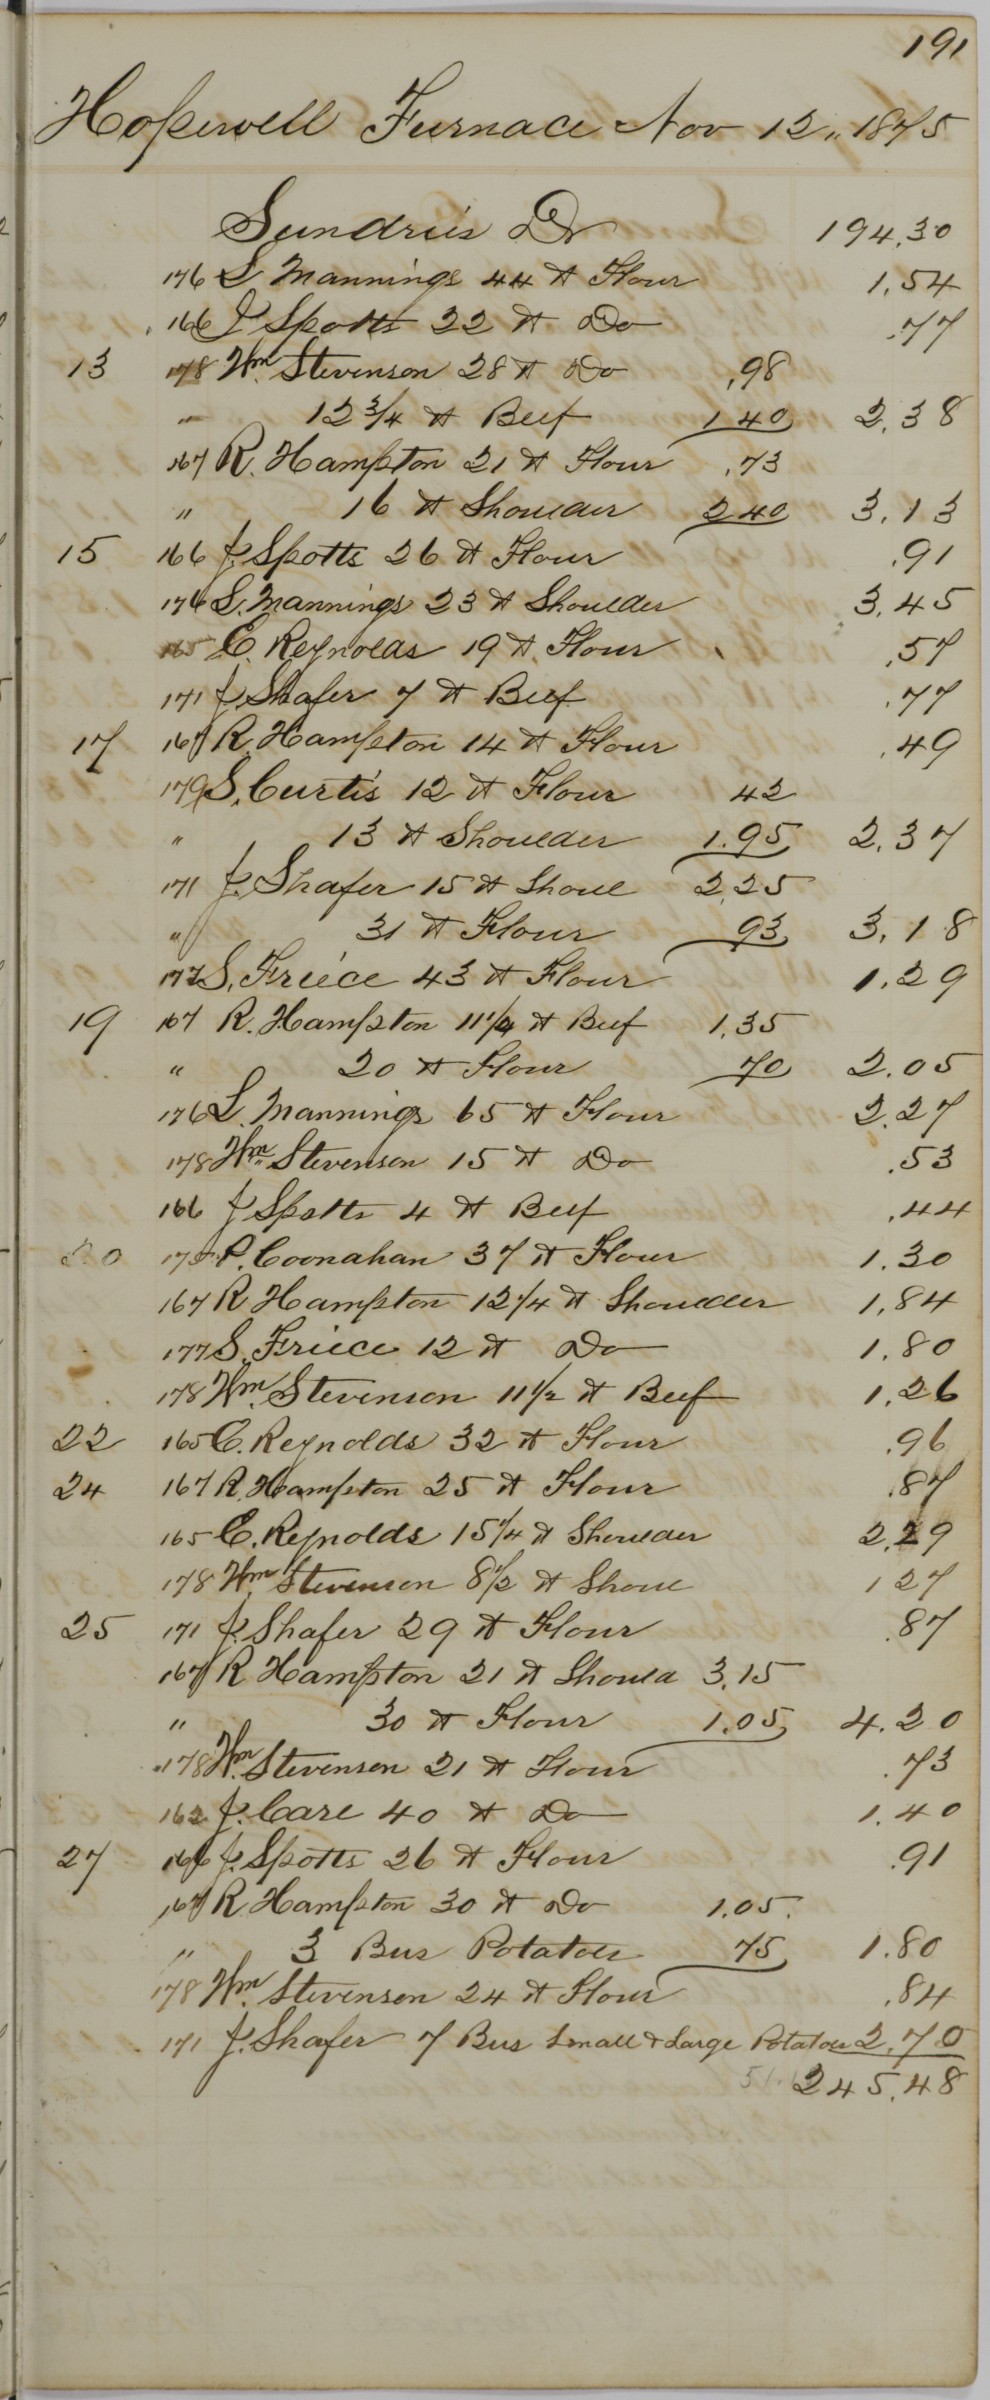 191
Hopewell Furnace Nov 12,, 1875
Sundries Dr 194.30
176 L Mannings 44 ℔ Flour 1.54
166 J Spotts 22 ℔ Do .77
13 178 Wm. Stevenson 28 ℔ Do .98
" 12 3/4 ℔ Beef 1 40 2.38
167 R. Hampton 21 ℔ Flour .73
" 16 ℔ Shoulder 2 40 3.13
15 166 J. Spotts 26 ℔ Flour .91
176 L. Mannings 23 ℔ Shoulder 3.45
165 C. Reynolds 19 ℔ Flour .57
171 J. Shafer 7 ℔ Beef .77
17 167 R. Hampton 14 ℔ Flour .49
179 S. Curtis 12 ℔ Flour 42
" 13 ℔ Shoulder 1.95 2.37
171 J. Shafer 15 ℔ Shoul 2.25
" 31 ℔ Flour 93 3.18
177 S. Friece 43 ℔ Flour 1.29
19 167 R. Hampton 11 1/4 ℔ Beef 1.35
" 20 ℔ Flour 70 2.05
176 L. Mannings 65 ℔ Flour 2.27
178 Wm. Stevenson 15 ℔ Do .53
166 J Spotts 4 ℔ Beef .44
20 175 P. Coonahan 37 ℔ Flour 1.30
167 R Hampton 12 1/4 ℔ Shoulder 1.84
177 S. Friece 12 ℔ Do 1.80
178 Wm. Stevenson 11 1/2 ℔ Beef 1.26
22 165 C. Reynolds 32 ℔ Flour .96
24 167 R. Hampton 25 ℔ Flour .87
165 C. Reynolds 15 1/4 ℔ Shoulder 2.29
178 Wm. Stevenson 8 1/2 ℔ Shoul 1 27
25 171 J. Shafer 29 ℔ Flour .87
167 R Hampton 21 ℔ Should 3.15
" 30 ℔ Flour 1.05 4.20
178 Wm. Stevenson 21 ℔ Flour .73
162 J. Care 40 ℔ Do 1.40
27 166 J. Spotts 26 ℔ Flour .91
167 R. Hampton 30 ℔ Do 1.05.
" 3 Bus Potatoes 75 1.80
178 Wm. Stevenson 24 ℔ Flour .84
171 J. Shafer 7 Bus Small & Large Potatoes 2.70
245.48